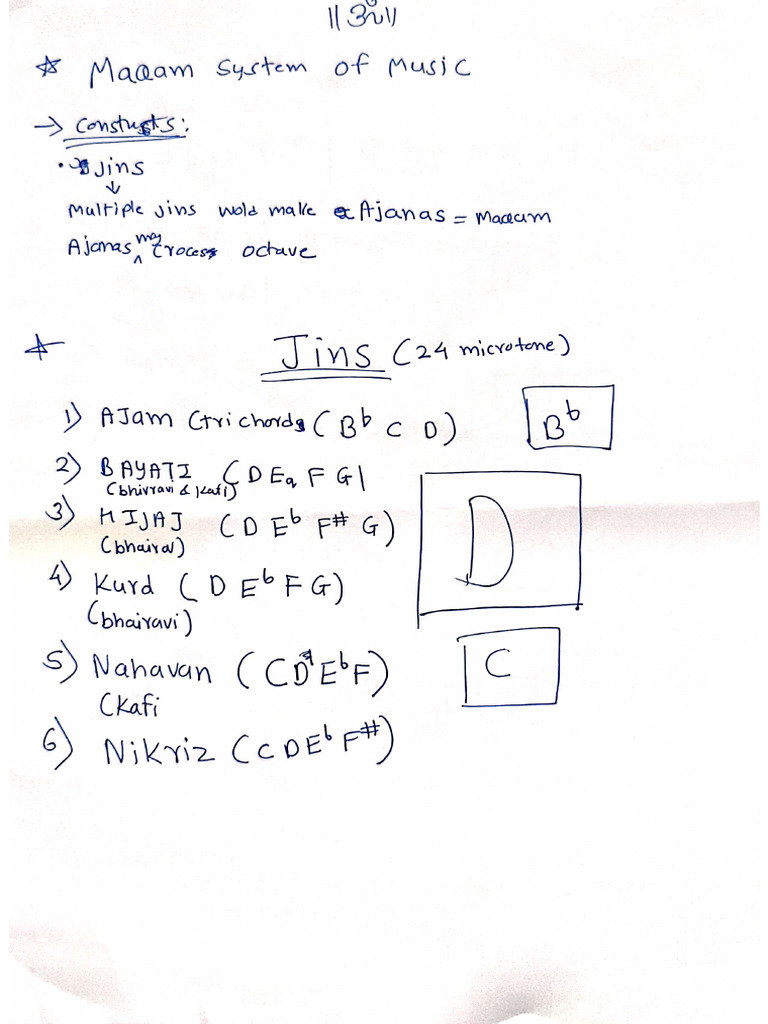 ॥ॐ॥
☆ Maqam System of Music
→ Constucts:
• Jins
↓
Multiple Jins wold make Ajanas = Maqam
Ajanas may crocess octave
☆ Jins (24 microtone)
1) AJam (trichords (B♭ C D) B♭
2) BAYATI ( D E F G)
(bhirravi & kafi)
3) HIJAJ ( D E♭ F# G) D
(bhairav)
4) Kurd ( D E♭ F G)
(bhairavi)
5) Nahavan ( C D E♭ F) C
(Kafi
6) Nikriz ( C D E♭ F#)